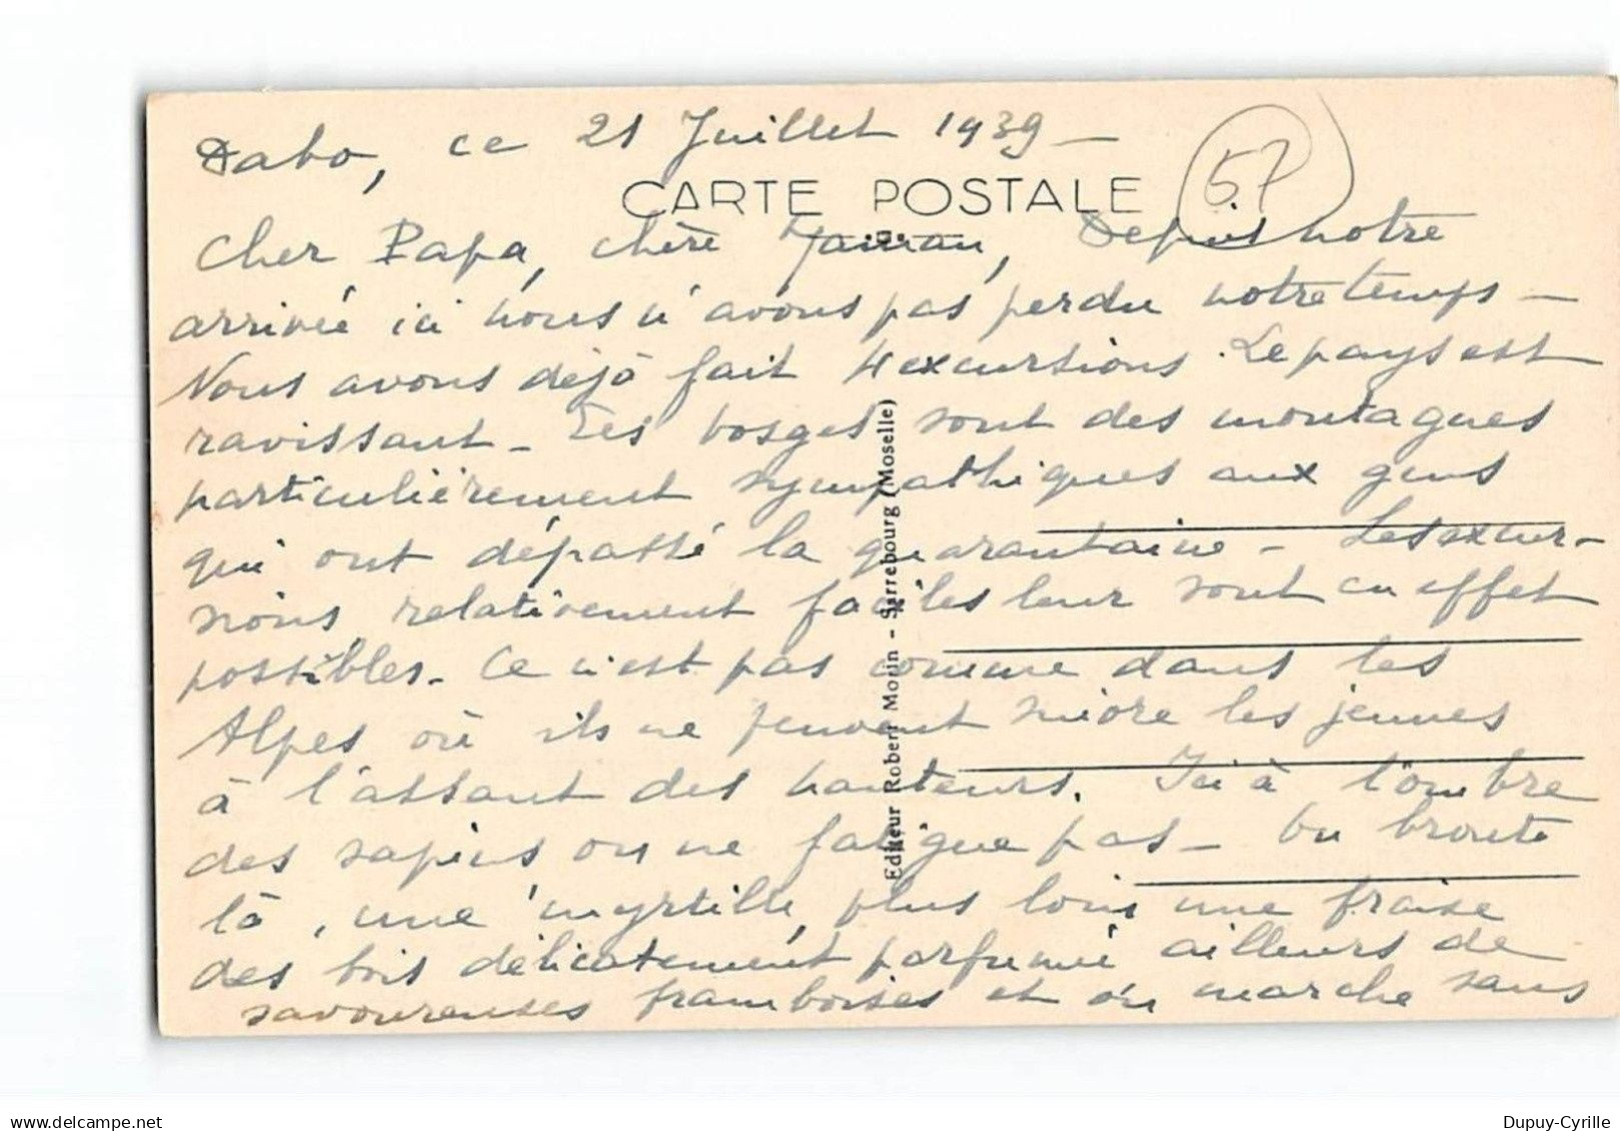 Dabo, ce 21 Juillet 1939 —
57
CARTE POSTALE
Cher Papa, chère Maman, Depuis notre
arrivée ici nous n'avons pas perdu notre temps —
Nous avons déjà fait 4 excursions. Le pays est
ravissant — Les Vosges sont des montagnes
particulièrement sympathiques aux gens
qui ont dépassé la quarantaine — Les excur-
sions relativement faciles leur sont en effet
possibles. Ce n'est pas comme dans les
Alpes où ils ne peuvent suivre les jeunes
à l'assaut des hauteurs. Ici à l'ombre
des sapins on ne fatigue pas — On broute
là, une myrtille, plus loin une fraise
des bois délicatement parfumée ailleurs de
savoureuses framboises et on marche sans
Editeur Robert Morin - Sarrebourg (Moselle)
delcampe.net
Dupuy-Cyrille